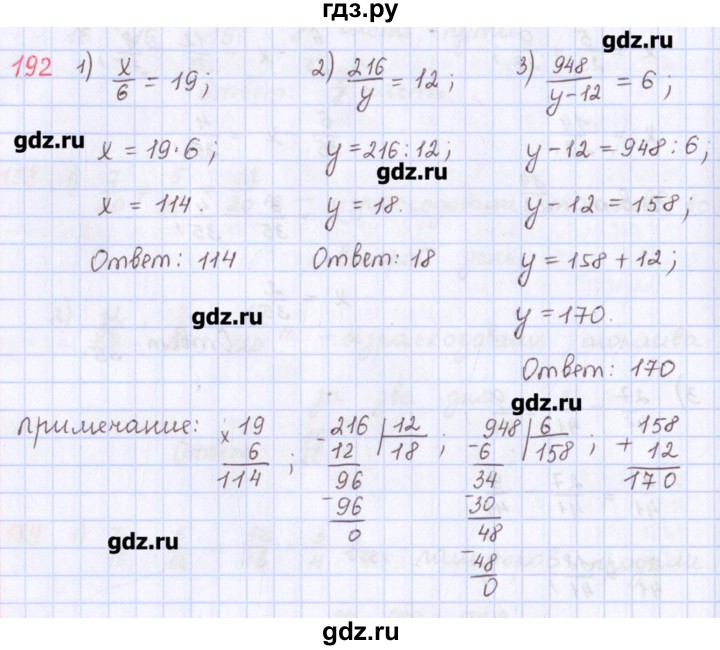 гдз.ру
gdz.ru
192 1) x/6 = 19; 2) 216/y = 12; 3) 948/(y-12) = 6;
gdz.ru
x = 19·6; y = 216:12; y-12 = 948:6;
gdz.ru
x = 114. y = 18. y-12 = 158;
Ответ: 114 Ответ: 18 y = 158+12;
gdz.ru
y = 170.
Ответ: 170
gdz.ru
примечание: × 19 - 216 | 12 948 | 6 158
6 12 | 18 ; - 6 | 158 ; + 12
114 ; 96 34 170
- 96 - 30
0 48
gdz.ru
- 48
0
gdz.ru